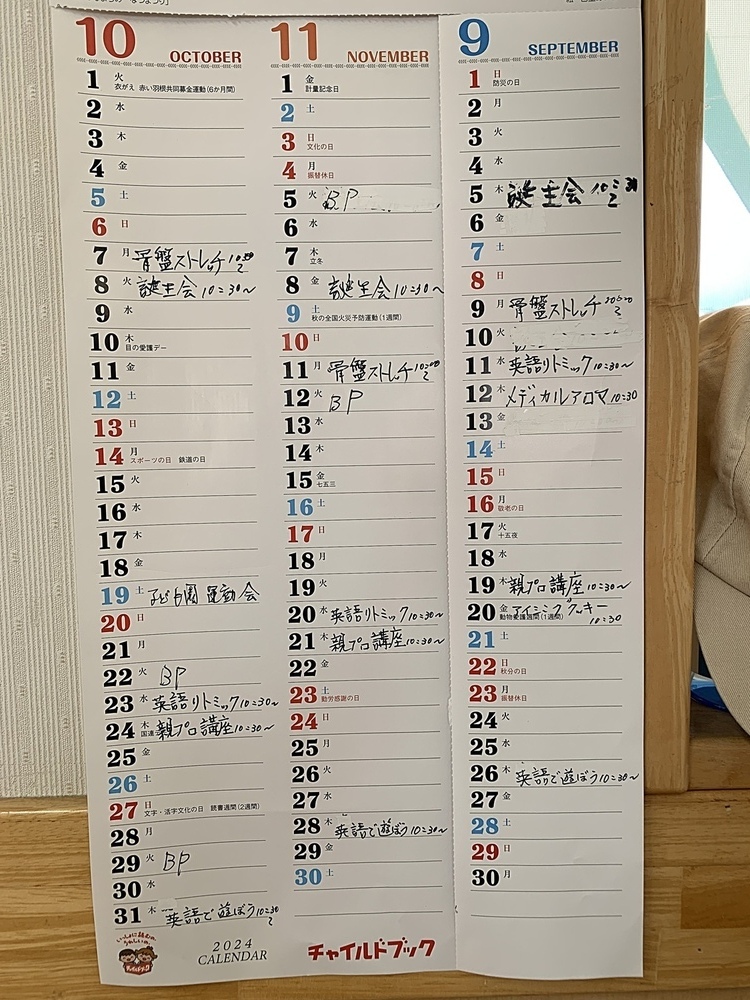 10 OCTOBER
1 火 衣がえ 赤い羽根共同募金運動(6か月間)
2 水
3 木
4 金
5 土
6 日
7 月 骨盤ストレッチ 10:30~
8 火 誕生会 10:30~
9 水
10 木 目の愛護デー
11 金
12 土
13 日
14 月 スポーツの日 鉄道の日
15 火
16 水
17 木
18 金
19 土 子ども園 運動会
20 日
21 月
22 火 BP
23 水 英語リトミック 10:30~
24 木 国連 親プロ講座 10:30~
25 金
26 土
27 日 文字・活字文化の日 読書週間(2週間)
28 月
29 火 BP
30 水
31 木 英語で遊ぼう 10:30~
いっしょに読むの、うれしいね。
チャイルドブック
2024
CALENDAR
11 NOVEMBER
1 金 計量記念日
2 土
3 日 文化の日
4 月 振替休日
5 火 BP
6 水
7 木 立冬
8 金 誕生会 10:30~
9 土 秋の全国火災予防運動(1週間)
10 日
11 月 骨盤ストレッチ 10:30~
12 火 BP
13 水
14 木
15 金 七五三
16 土
17 日
18 月
19 火
20 水 英語リトミック 10:30~
21 木 親プロ講座 10:30~
22 金
23 土 勤労感謝の日
24 日
25 月
26 火
27 水
28 木 英語で遊ぼう 10:30~
29 金
30 土
チャイルドブック
9 SEPTEMBER
1 日 防災の日
2 月
3 火
4 水
5 木 誕生会 10:30~
6 金
7 土
8 日
9 月 骨盤ストレッチ 10:30~
10 火
11 水 英語リトミック 10:30~
12 木 メディカルアロマ 10:30
13 金
14 土
15 日
16 月 敬老の日
17 火 十五夜
18 水
19 木 親プロ講座 10:30~
20 金 動物愛護週間(1週間) アイシングクッキー 10:30
21 土
22 日 秋分の日
23 月 振替休日
24 火
25 水
26 木 英語で遊ぼう 10:30~
27 金
28 土
29 日
30 月